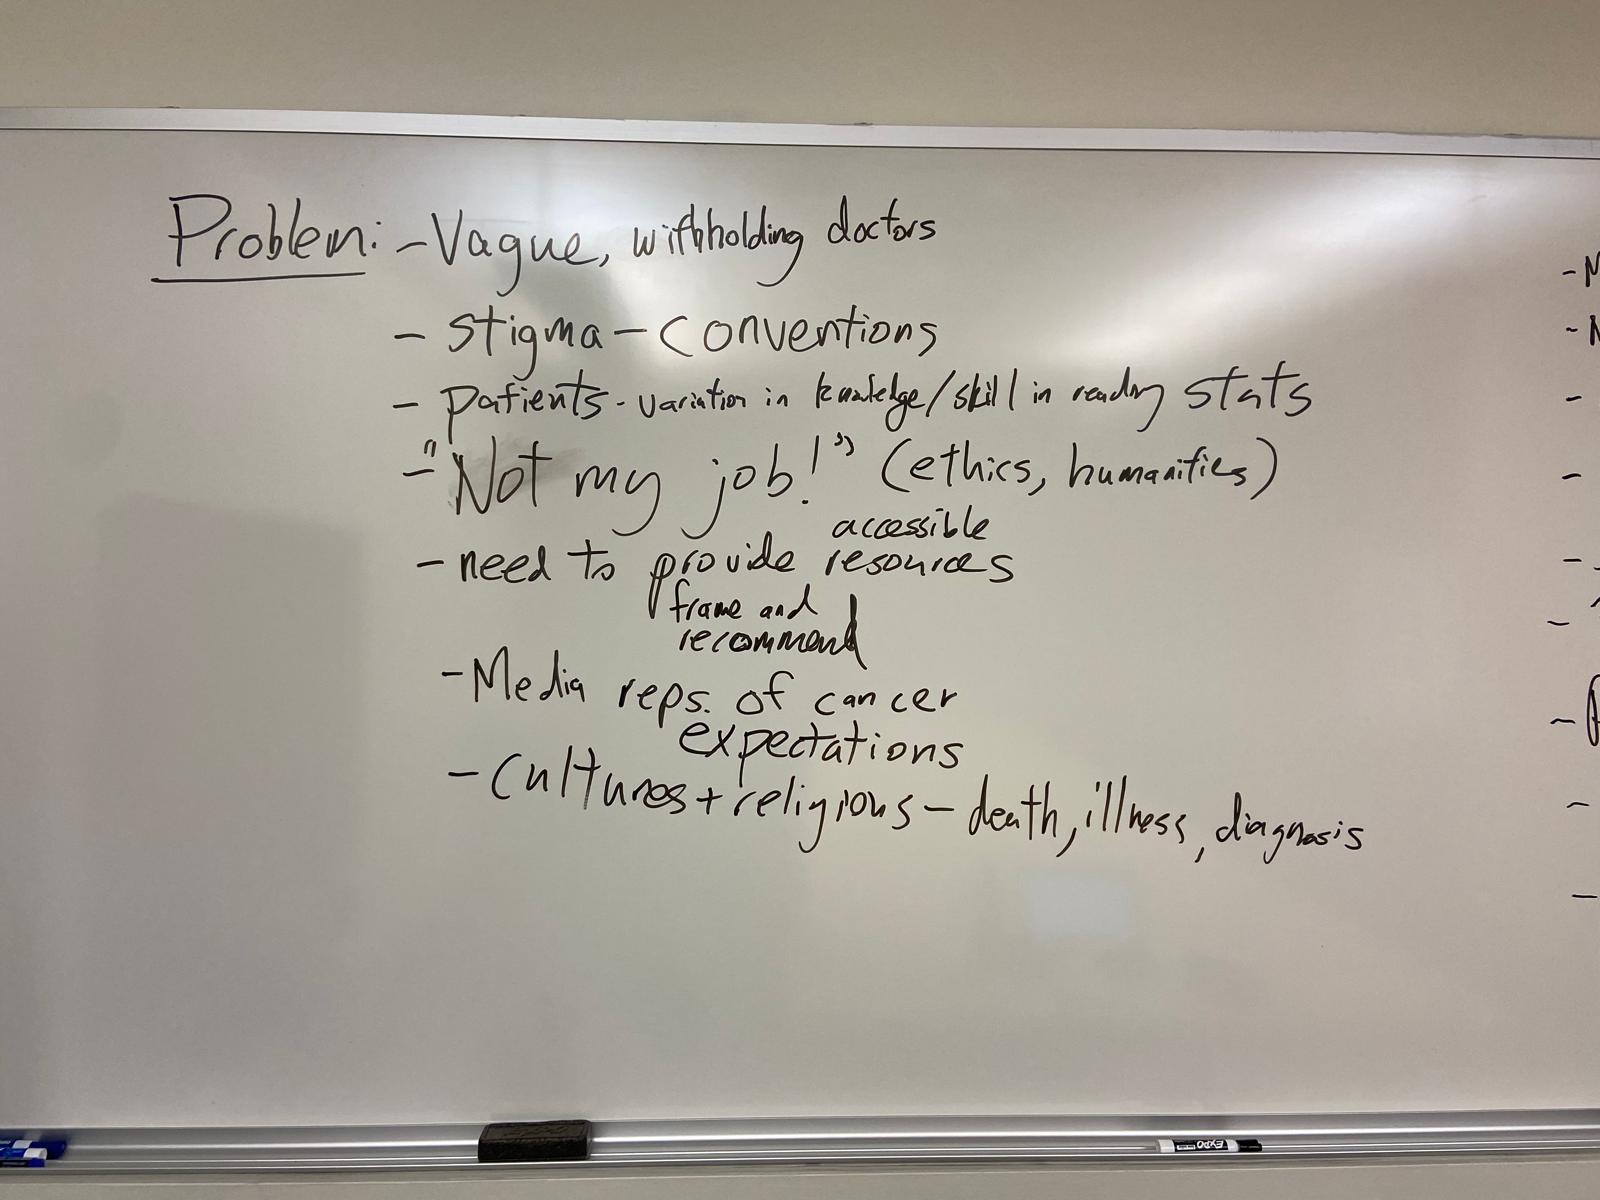 Problem: - Vague, withholding doctors
- Stigma - conventions
- patients - variation in knowledge/skill in reading stats
- "Not my job!" (ethics, humanities)
accessible
- need to provide resources
frame and
recommend
- Media reps. of cancer
expectations
- Cultures + religious - death, illness, diagnosis
EXPO